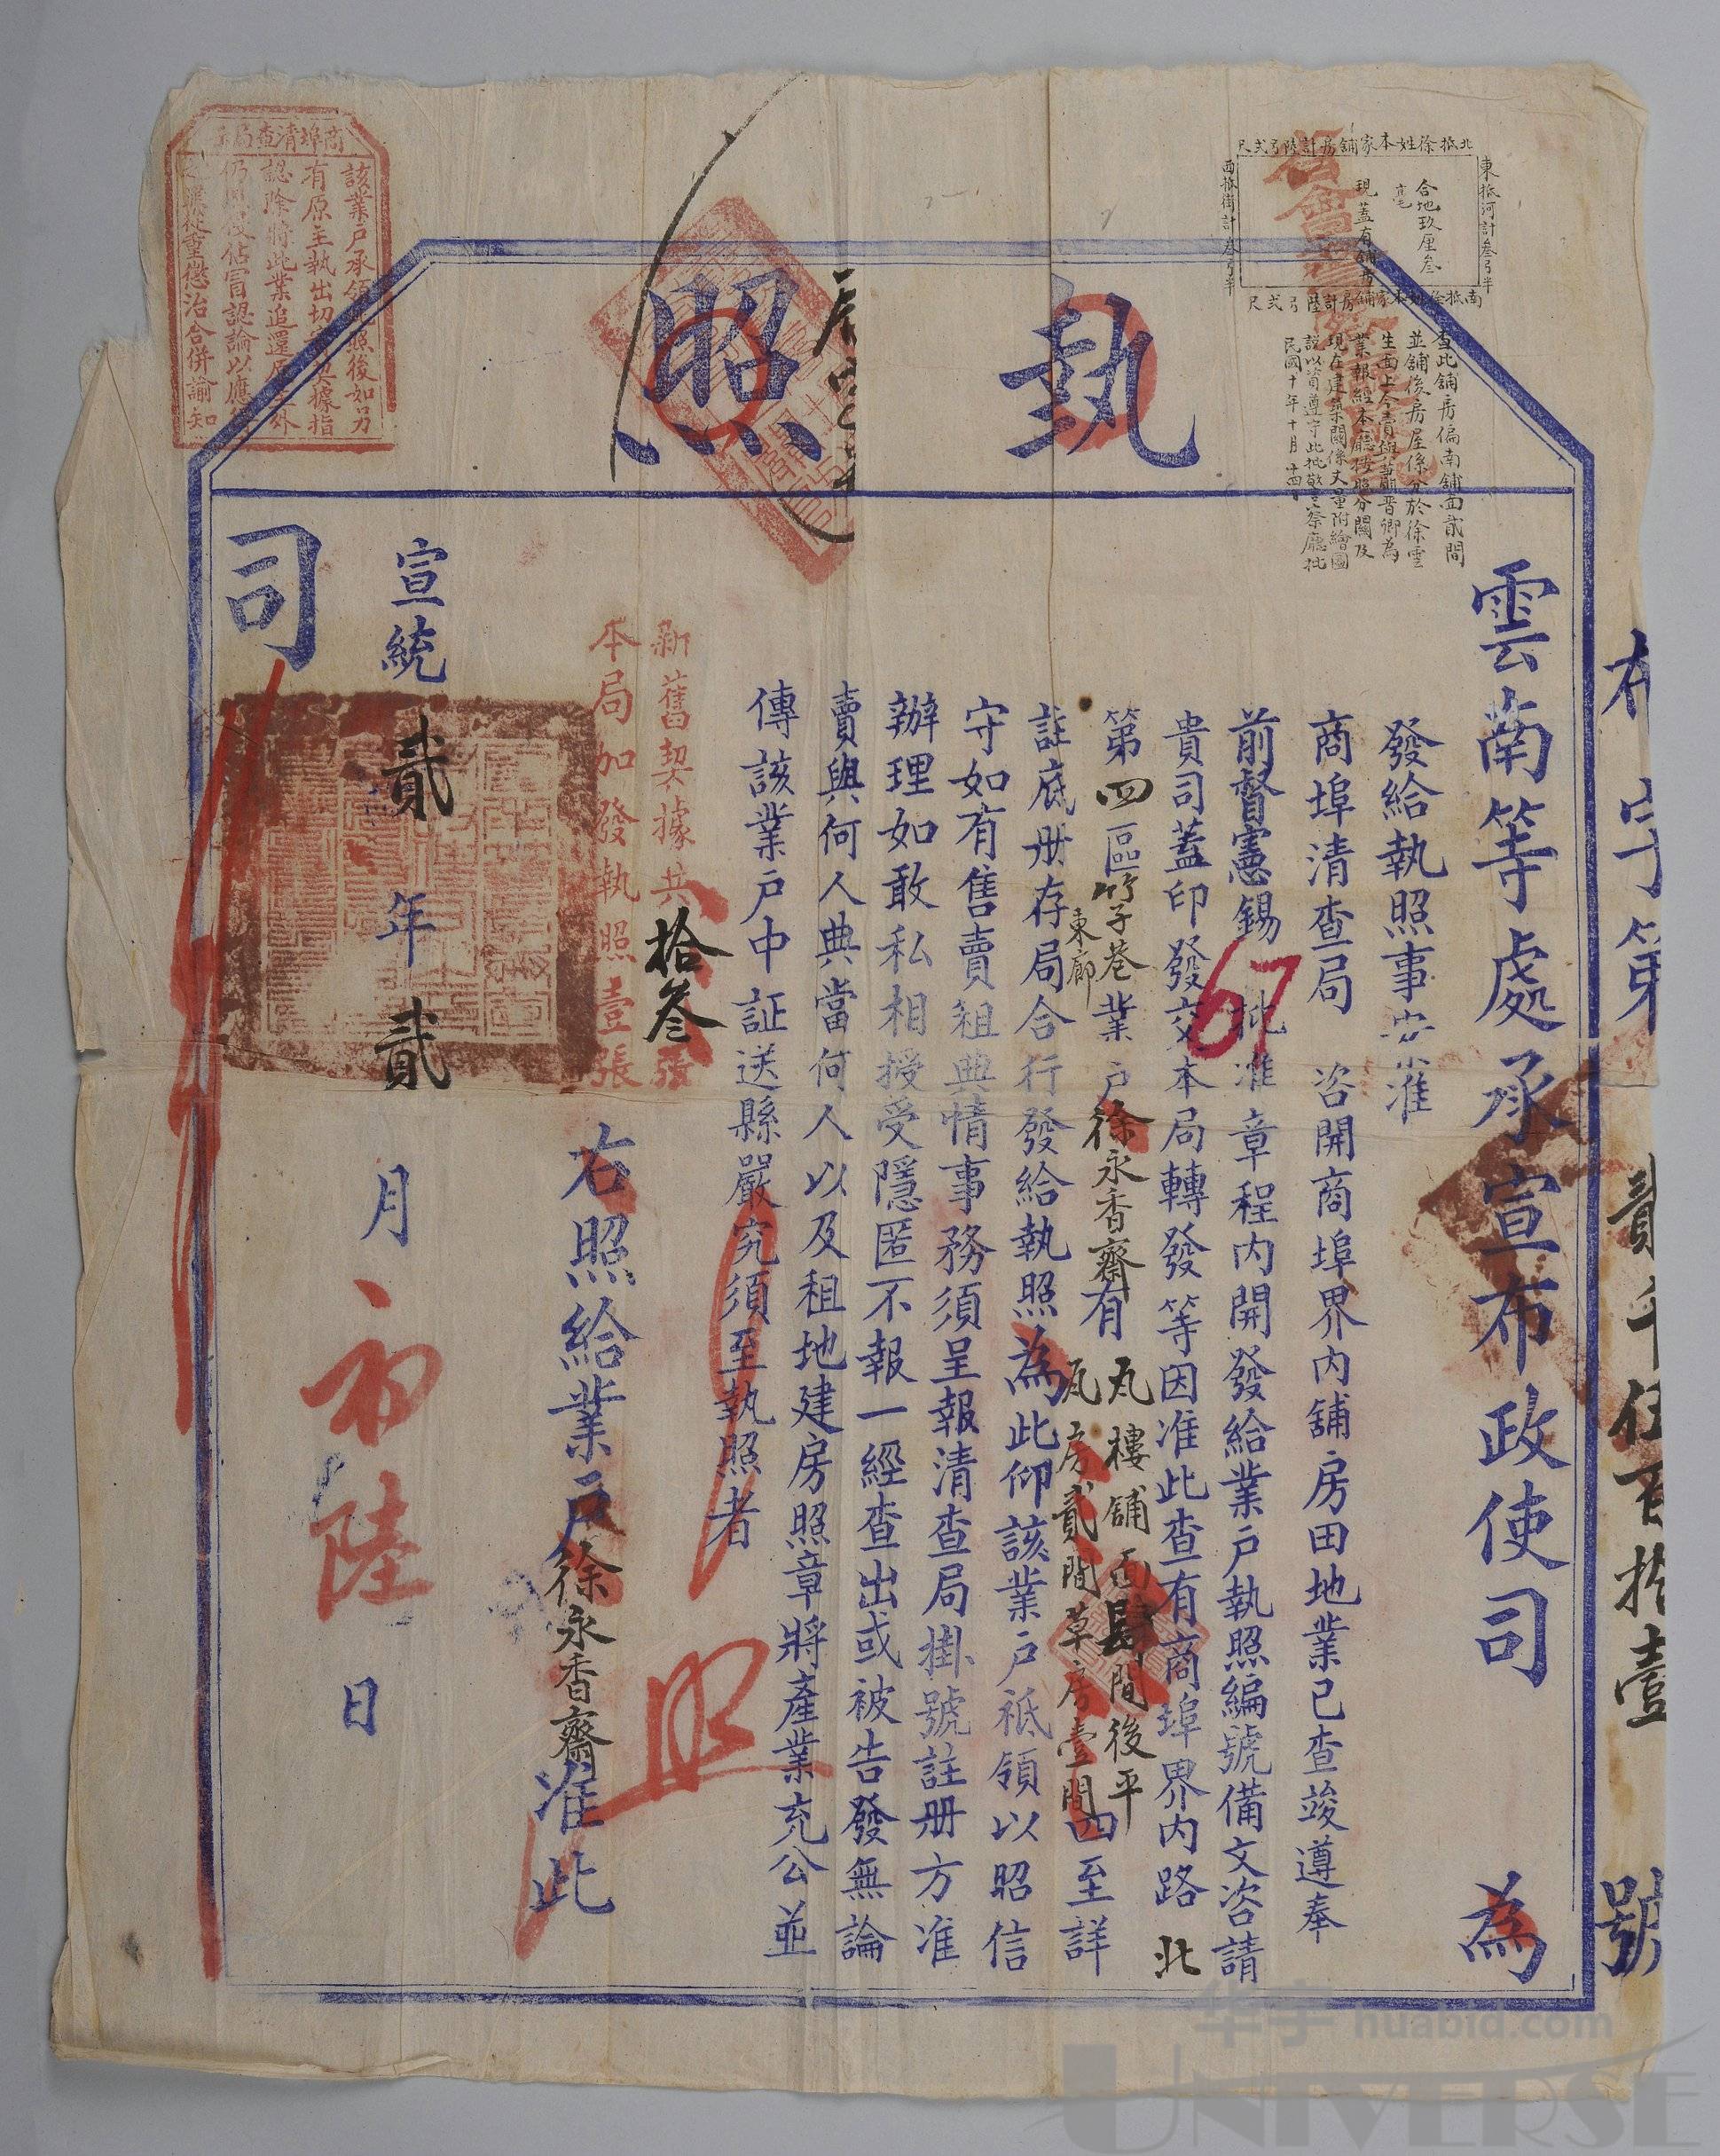 執照
布字第貳千伍百拾壹號
雲南等處承宣布政使司為
發給執照事案准
商埠清查局咨開商埠界内舖房田地業已查竣遵奉
前督憲錫批准章程内開發給業戶執照編號備文咨請
貴司蓋印發交本局轉發等因准此查有商埠界内路北
第四區竹子巷東廊業戶徐永香齋有瓦樓舖面肆間後平瓦房貳間草房壹間四至詳
註底册存局合行發給執照為此仰該業戶祇領以昭信
守如有售賣租典情事務須呈報清查局掛號註册方准
辦理如敢私相授受隱匿不報一經查出或被告發無論
賣與何人典當何人以及租地建房照章將產業充公並
傳該業戶中証送縣嚴究須至執照者
新舊契據共拾叁發
本局加發執照壹張
右照給業戶徐永香齋准此
宣統貳年貳月初陸日
司
照
67
北抵徐姓本家舖房計陸弓弍尺
東抵河計叁弓半
合地玖厘叁毫
現蓋有舖房
西抵街計叁弓半
南抵徐姓本家舖房計陸弓弍尺
查此舖房偏南舖面貳間
並舖後房屋係分於徐雲
生面上今賣與蕭晋卿為
業報經本廳按照分關及
現在建築關係丈量附繪圖
說以資遵守此批警察廳批
民國十年十月十四日
商埠清查局
該業戶承領執照後如另
有原主執出切實契據指
認除將此業追還原主外
仍照侵佔冒認論以應得
之罪從重懲治合併諭知
华宇 huabid.com
UNIVERSE